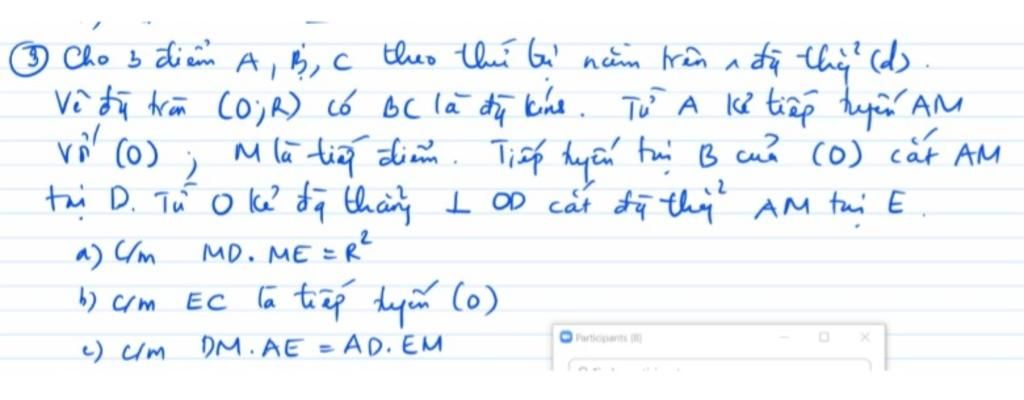 ③ Cho 3 điểm A, B, C theo thứ tự nằm trên 1 đg thg² (d).
Vẽ đg tròn (O;R) có BC là đg kính. Từ A kẻ tiếp tuyến AM
với (O); M là tiếp điểm. Tiếp tuyến tại B của (O) cắt AM
tại D. Từ O kẻ đg thẳng ⊥ OD cắt đg thg² AM tại E.
a) C/m MD.ME = R²
b) c/m EC là tiếp tuyến (O)
c) c/m DM.AE = AD.EM
Participants (8)